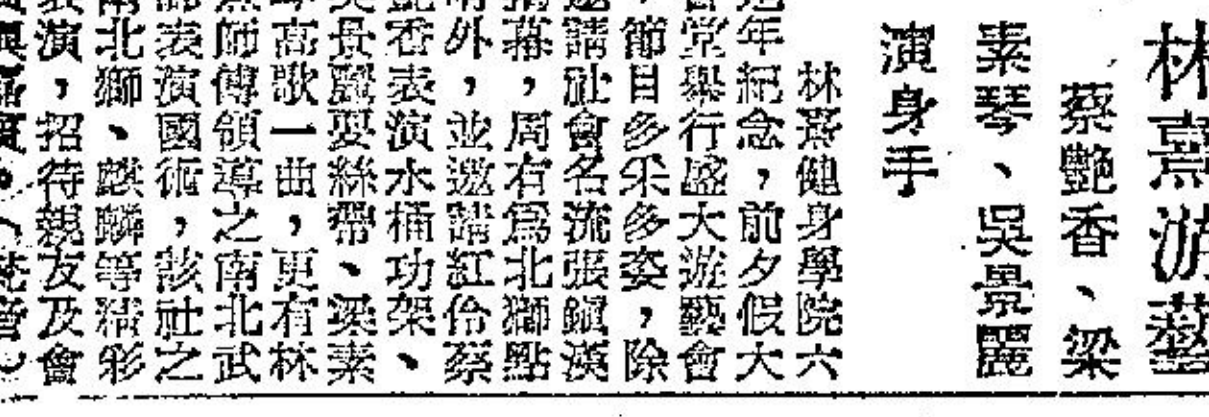 林熹游藝
蔡艷香、梁
素琴、吳景麗
演身手
林熹健身學院六
年紀念，前夕假大
堂舉行盛大遊藝會
節目多采多姿，除
請社會名流張鎮漢
幕，周有爲北獅點
外，並邀請紅伶蔡
香表演水桶功架、
景麗耍絲帶、梁素
高歌一曲，更有林
師傅領導之南北武
表演國術，該社之
北獅、麒麟等精彩
演，招待親友及會